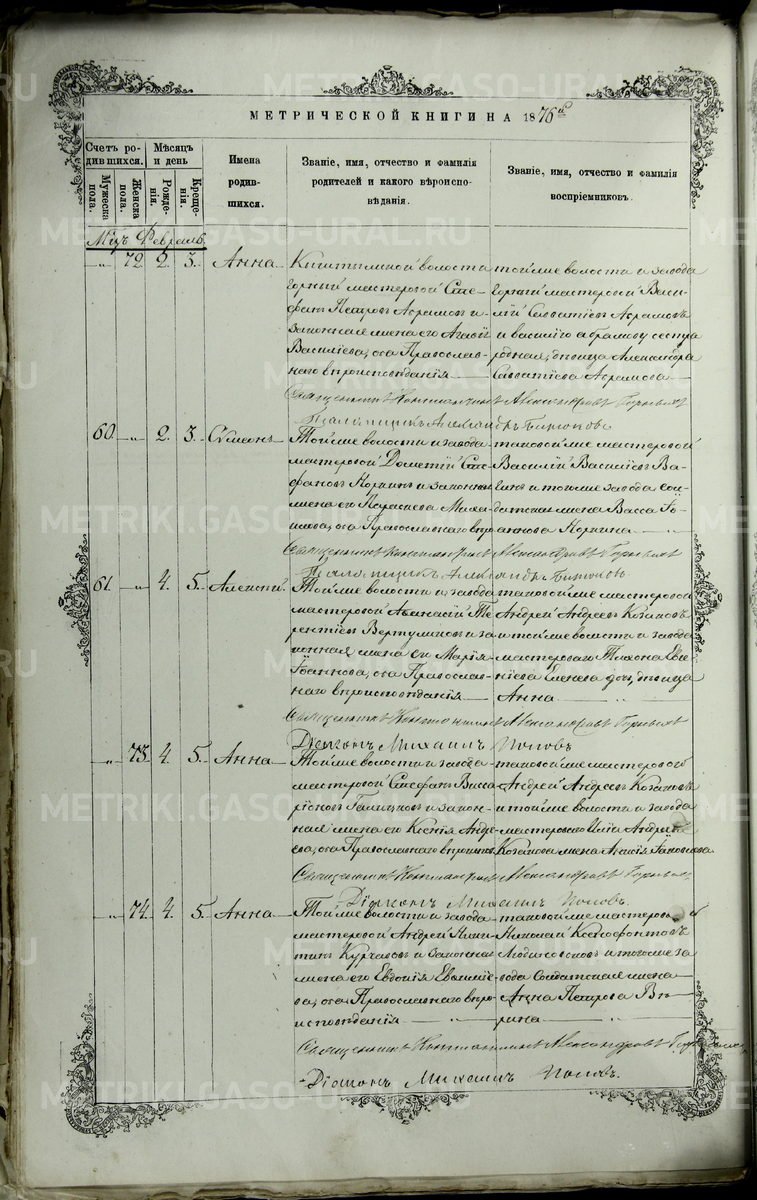 МЕТРИЧЕСКОЙ КНИГИ НА 1876й
Счетъ ро-
дившихся.
Мѣсяцъ
и день
Мужеска
пола.
Женска
пола.
Рожде-
нія.
Креще-
нія.
Имена
родив-
шихся.
Званіе, имя, отчество и фамилія
родителей и какого вѣроиспо-
вѣданія.
Званіе, имя, отчество и фамилія
воспріемниковъ.
Мцъ Февраль.
72. 2. 3. Анна
Кыштымской волости
горный мастеровой Сте-
фанъ Петровъ Абрамовъ и
законная жена его Агафія
Василіева, оба Православ-
наго вѣроисповѣданія
той же волости и завода
горный мастеровой Васи-
лій Савватіевъ Абрамовъ
и Василію Абрамову сестра
родная, дѣвица Александра
Савватіева Абрамова
Священникъ Константинъ Александровъ
Псаломщикъ Александръ Бирюковъ
60. 2. 3. Сѵмеонъ
Той же волости и завода
мастеровой Дометій Сте-
фановъ и законная
жена его Параскева
оба Православнаго вѣро
таковой же мастеровой
Василій Василіевъ
и той же завода сол-
датская жена Васса Іо-
аннова
Священникъ Константинъ Александровъ
Псаломщикъ Александръ Бирюковъ
61. 4. 5. Алексій
Той же волости и завода
мастеровой Аѳанасій Те-
рентіевъ и за-
конная жена его Марія
Іоаннова, оба Православ-
наго вѣроисповѣданія
таковой же мастеровой
Андрей Андреевъ Козаковъ
и той же волости и завода
мастероваго Тихона Евге-
ніева дочь, дѣвица
Анна
Священникъ Константинъ Александровъ
Діаконъ Михаилъ Поповъ
73. 4. 5. Анна
Той же волости и завода
мастеровой Стефанъ Васса-
ріоновъ Галицковъ и закон-
ная жена его Ксенія Андре-
ева, оба Православнаго вѣроисповѣд.
таковой же мастеровой
Андрей Андреевъ Козаковъ
и той же волости и завода
мастероваго Иліи Андреева
Козакова жена Іаковлева.
Священникъ Константинъ Александровъ
Діаконъ Михаилъ Поповъ.
74. 4. 5. Анна
Той же волости и завода
мастеровой Андрей Ники-
тинъ Курчавовъ и законная
жена его Евдокія Евѳиміе-
ва, оба Православнаго вѣро-
исповѣданія
таковой же мастеровой
Николай Ксенофонтовъ
и того же за-
вода Солдатская жена
Анна Петрова
Священникъ Константинъ Александровъ
Діаконъ Михаилъ Поповъ.
METRIKI.GASO-URAL.RU